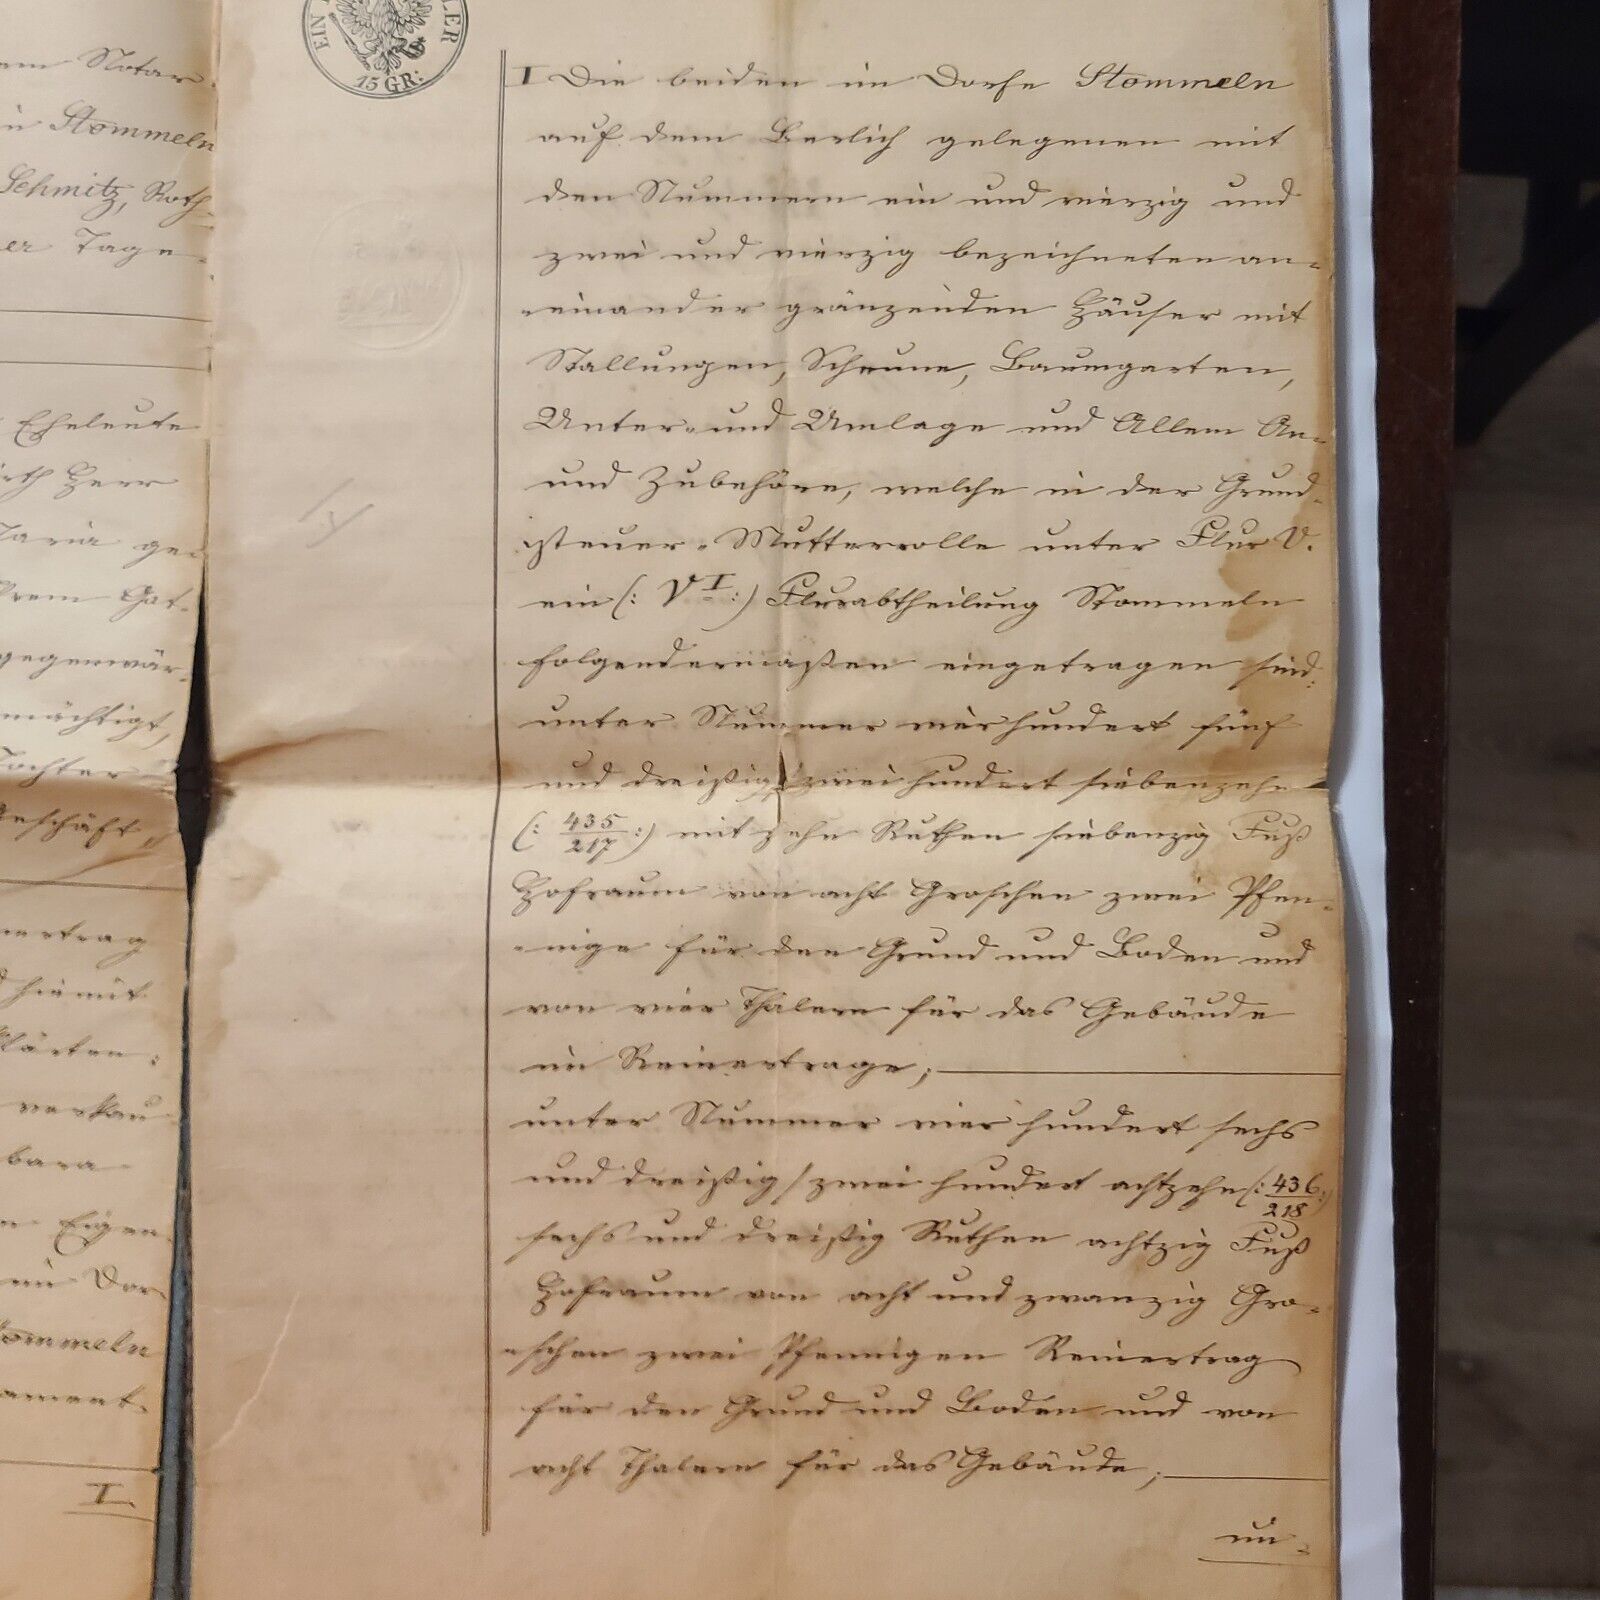 EIN
LER
15 GR:
Notar
in Stommeln
Schmitz, Roth-
er Tage-
Eheleute
Herr
Maria ge-
Gat-
gegenwär-
mächtigt,
Tochter
Geschäft
vertrag
hiemit
klärten:
verkau-
bara
Eigen-
im Dor-
Stommeln
ament-
I.
I Die beiden im Dorfe Stommeln
auf dem Berlich gelegenen mit
den Nummern ein und vierzig und
zwei und vierzig bezeichneten an-
-einander gränzenden Häuser mit
Stallungen, Scheune, Baumgarten,
Unter- und Umlage und Allem An-
und Zubehöre, welche in der Grund-
-steuer-Mutterrolle unter Flur V.
ein (: V^I :) Flurabtheilung Stommeln
folgendermaßen eingetragen sind:
unter Nummer vierhundert fünf
und dreißig/zweihundert siebenzehn
(: 435/217 :) mit zehn Ruthen siebenzig Fuß
Hofraum von acht Groschen zwei Pfen-
-nige für den Grund und Boden und
von vier Thalern für das Gebäude
im Reinertrage;
unter Nummer vier hundert sechs
und dreißig/zwei hundert achtzehn (: 436/218 :)
sechs und dreißig Ruthen achtzig Fuß
Hofraum von acht und zwanzig Gro-
-schen zwei Pfennigen Reinertrag
für den Grund und Boden und von
acht Thalern für das Gebäude;
un-